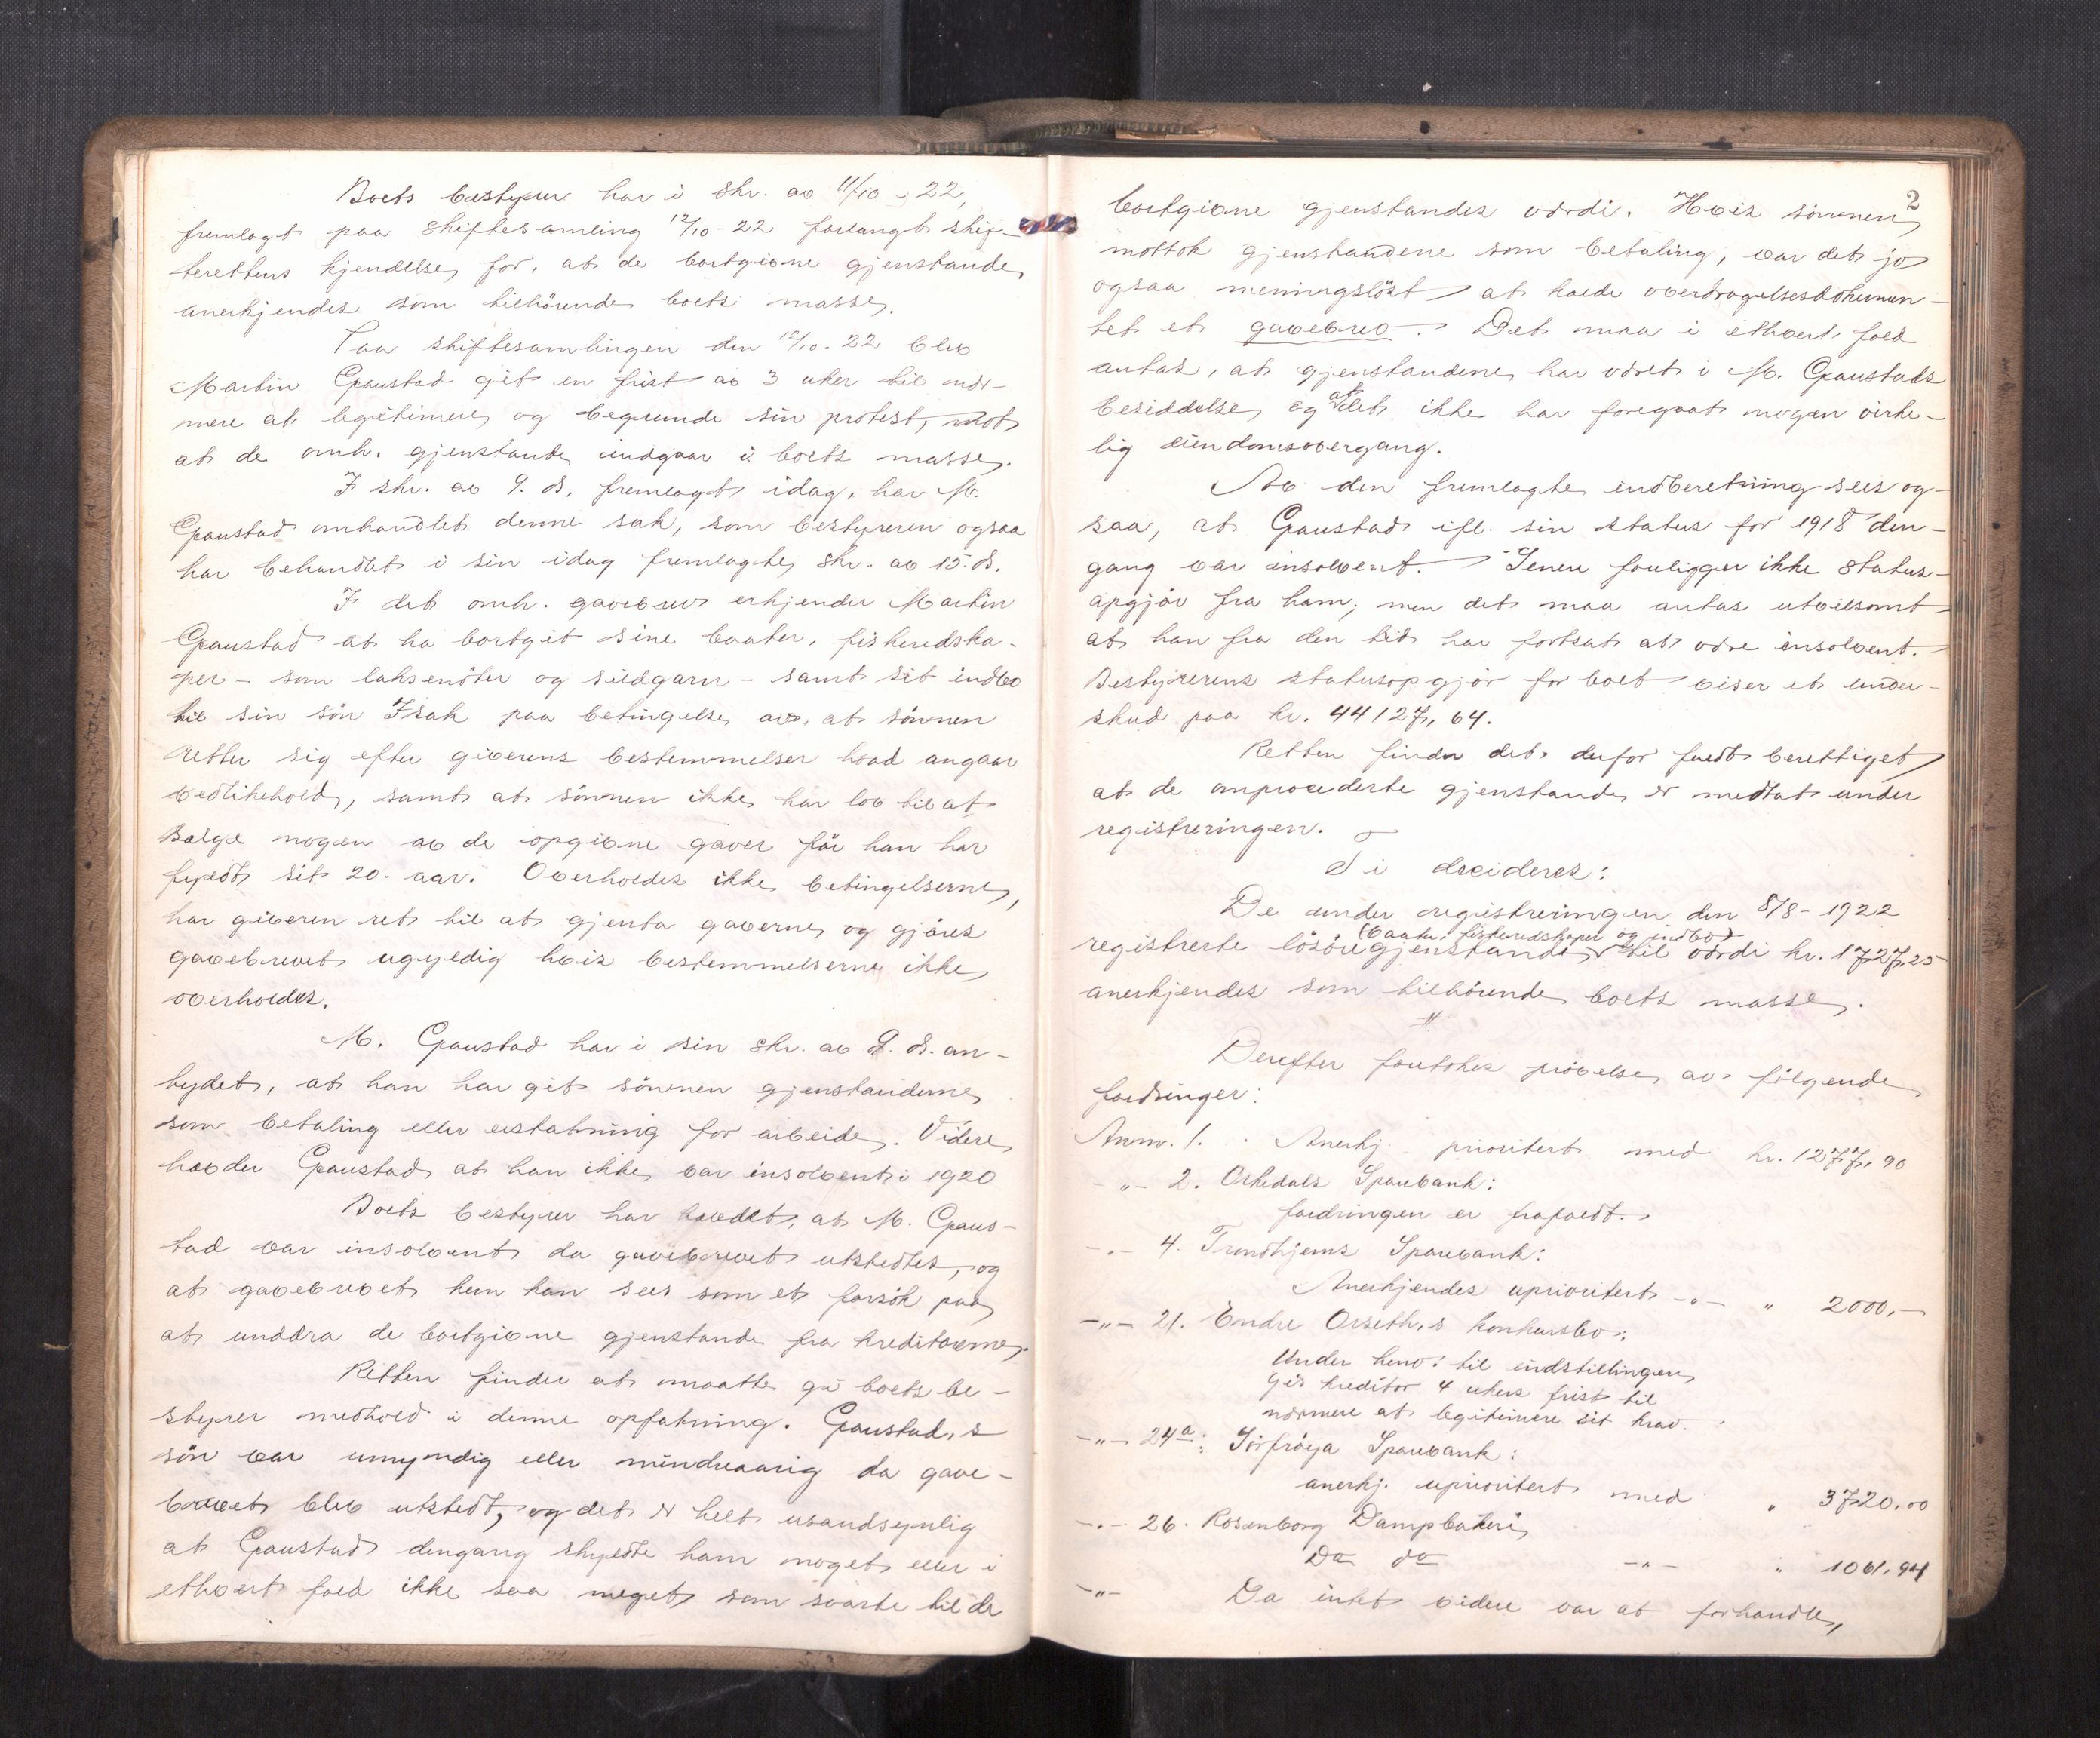 Boets bestyrer har i skr. av 11/10 - 22,
fremlagt paa skiftesamling 12/10 - 22 forlangt skif-
terettens kjendelse for, at de bortgivne gjenstande
anerkjendes som tilhörende boets masse.
Paa skiftesamlingen den 12/10. 22 blev
Martin Gaustad git en frist av 3 uker til nær-
mere at legitimere og begrunde sin protest, mot
at de omh. gjenstande indgaar i boets masse.
I skr. av 9. ds. fremlagt idag, har M.
Gaustad omhandlet denne sak, som bestyreren ogsaa
har behandlet i sin idag fremlagte skr. av 15. ds.
I det omh. gavebrev erkjender Martin
Gaustad at ha bortgit sine baater, fiskeredska-
per - som laksenöter og sildgarn - samt sit indbo
til sin sön Isak paa betingelse av, at sönnen
retter sig efter giverens bestemmelser hvad angaar
vedlikehold, samt at sönnen ikke har lov til at
sælge nogen av de opgivne gaver før han har
fyldt sit 20. aar. Overholdes ikke betingelserne,
har giveren ret til at gjenta gaverne og gjöres
gavebrevet ugyldig hvis bestemmelserne ikke
overholdes.
M. Gaustad har i sin skr. av 9. ds. an-
tydet, at han har git sönnen gjenstandene
som betaling eller erstatning for arbeide. Videre
hævder Gaustad at han ikke var insolvent i 1920
Boets bestyrer har hævdet, at M. Gaus-
tad var insolvent da gavebrevet utstedtes, og
at gavebrevet kun kan sees som et forsök paa
at unddra de bortgivne gjenstande fra kreditorerne.
Retten finder at maatte gi boets be-
styrer medhold i denne opfatning. Gaustad,s
sön var umyndig eller mindreaarig da gave-
brevet blev utstedt, og det er helt usandsynlig
at Gaustad dengang skyldte ham noget eller i
ethvert fald ikke saa meget som svarte til de
2
bortgivne gjenstandes værdi. Hvis sönnen
mottok gjenstandene som betaling, var det jo
ogsaa meningslöst at kalde overdragelsesdokumen-
tet et gavebrev. Det maa i ethvert fald
antas, at gjenstandene har været i M. Gaustads
besiddelse og at det ikke har foregaat nogen virke-
lig eiendomsovergang.
Av den fremlagte indberetning sees og-
saa, at Gaustad ifl. sin status for 1918 den-
gang var insolvent. Senere foreligger ikke status-
opgjör fra ham, men det maa antas utvilsomt
at han fra den tid har fortsat at være insolvent.
Bestyrerens statusopgjör for boet viser et under-
skud paa kr. 44127,64.
Retten finder det derfor fuldt berettiget
at de omprocederte gjenstande er medtat under
registreringen.
Ti decideres:
De under registreringen den 8/8 - 1922
(baater, fiskeredskaper og indbo)
registrerte lösöregjenstande til værdi kr. 1727,25
anerkjendes som tilhörende boets masse.
Derefter foretokes prövelse av fölgende
fordringer:
Anm. 1. Anerkj. prioritert med kr. 1277,90
-"- 2. Orkedals Sparebank:
fordringen er frafaldt.
-"- 4. Trondhjems Sparebank:
Anerkjendes uprioritert -"- " 2000,-
-"- 21. Endre Orseth,s konkursbo:
Under henv. til indstillingen
gis kreditor 4 ukers frist til
nærmere at legitimere sit krav.
-"- 24a: Sörfröya Sparebank:
anerkj. uprioritert med " 3720,00
-"- 26. Rosenborg Dampbakeri
Do do -"- " 1061,94
-"- Da intet videre var at forhandle,